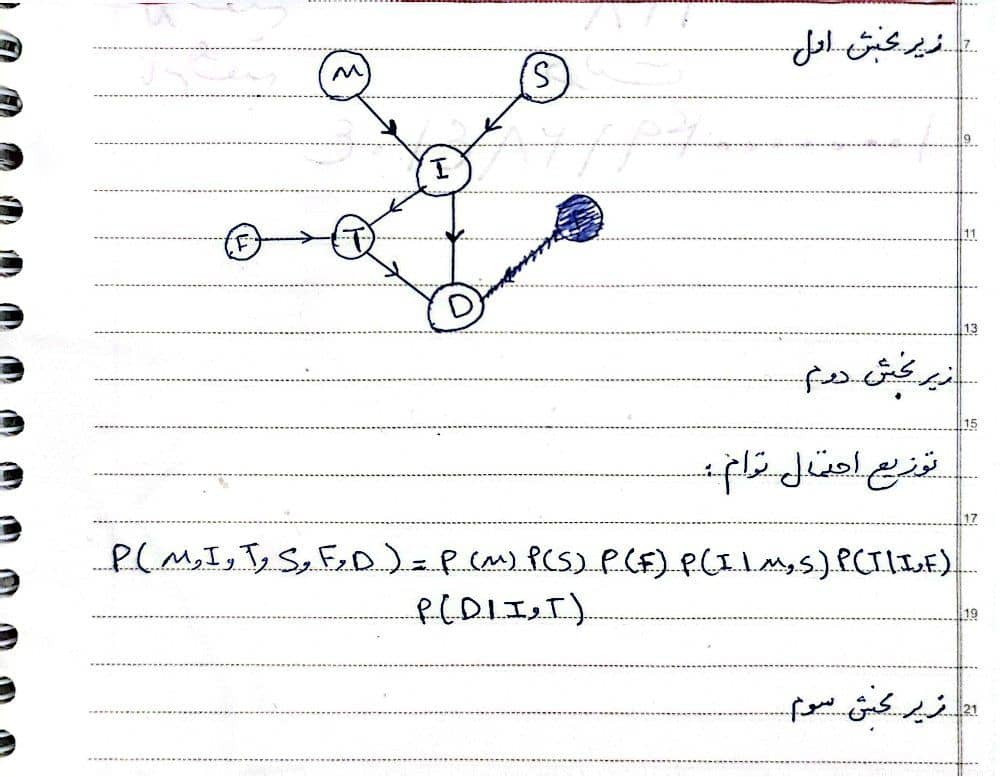 زیر بخش اول
M
S
I
F
T
D
زیر بخش دوم
توزیع احتمال توام :
P(M,I,T,S,F,D) = P(M) P(S) P(F) P(I|M,S) P(T|I,F)
P(D|I,T)
زیر بخش سوم
7
9
11
13
15
17
19
21